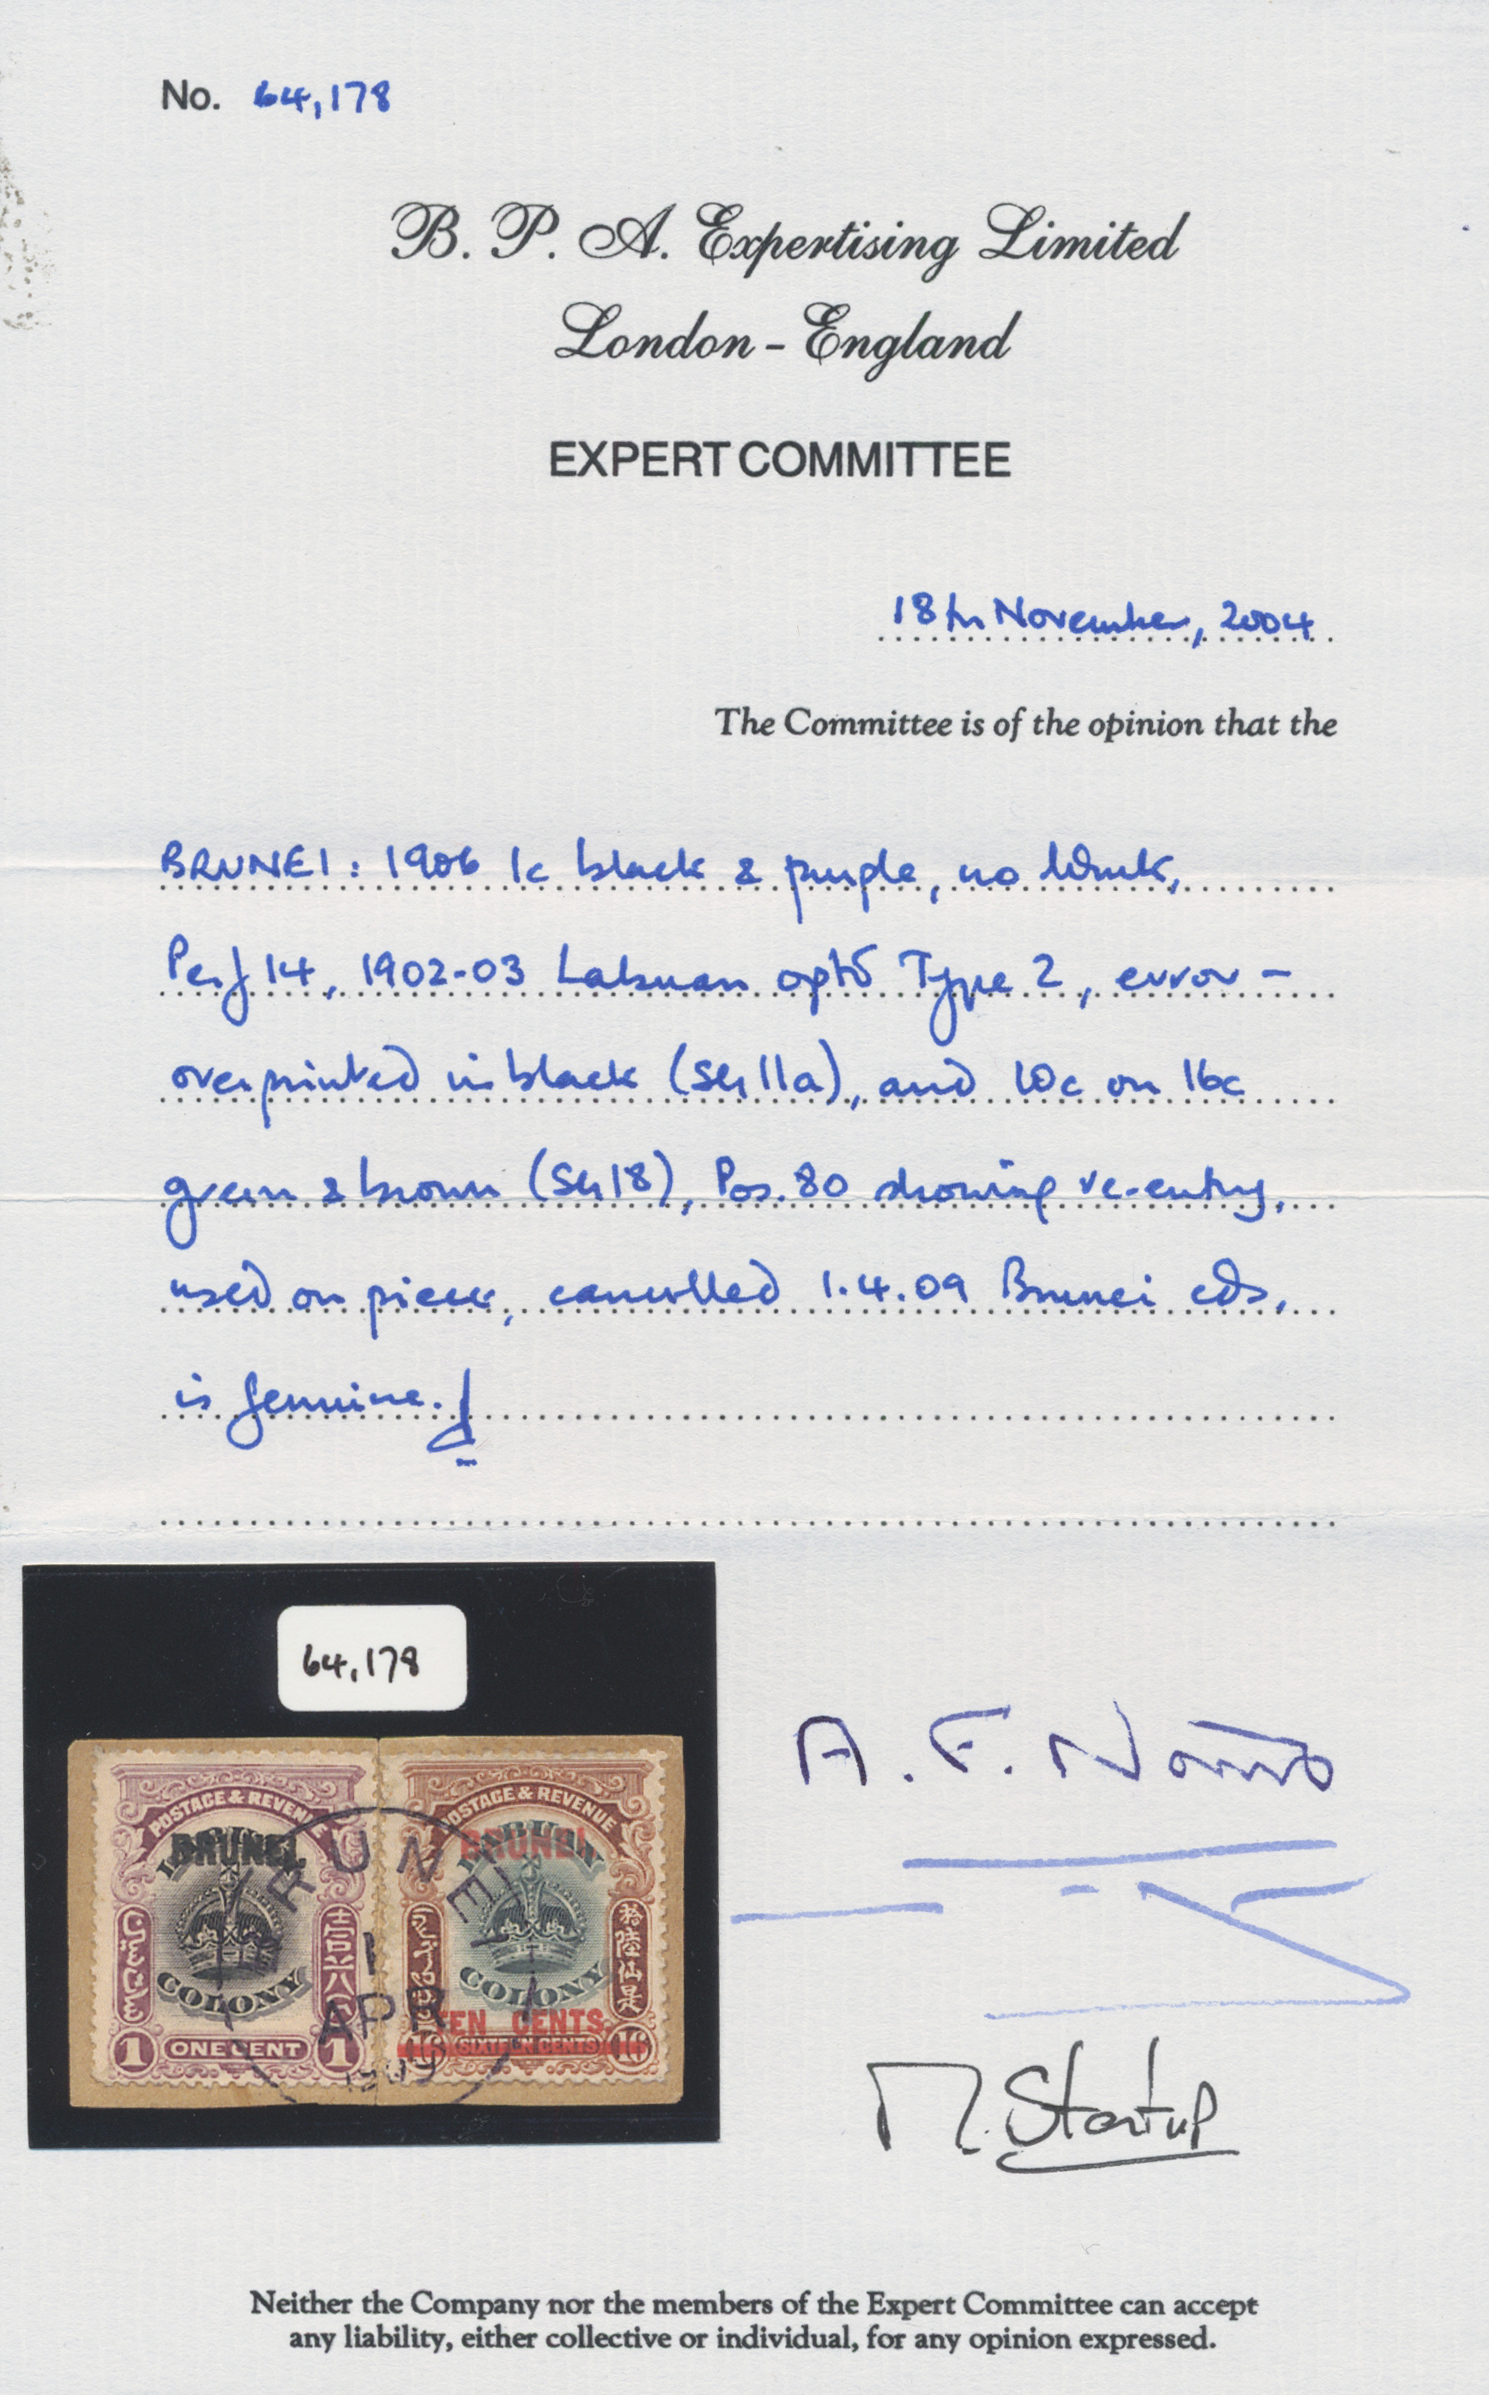 No. 64,178
B. P. A. Expertising Limited
London - England
EXPERT COMMITTEE
18th November, 2004
The Committee is of the opinion that the
BRUNEI: 1906 1c black & purple, no Wmk,
Perf 14, 1902-03 Labuan optd Type 2, error -
overprinted in black (SG 11a), and 10c on 16c
green & brown (SG 18), Pos. 80 showing re-entry,
used on piece, cancelled 1.4.09 Brunei cds,
is genuine.
64,178
POSTAGE & REVENUE
BRUNEI.
COLONY
1 ONE CENT 1
POSTAGE & REVENUE
LABUAN
BRUNEI.
COLONY
TEN CENTS.
16 SIXTEEN CENTS 16
BRUNEI
1
APR
1909
A. F. Norris
M. Startup
Neither the Company nor the members of the Expert Committee can accept
any liability, either collective or individual, for any opinion expressed.